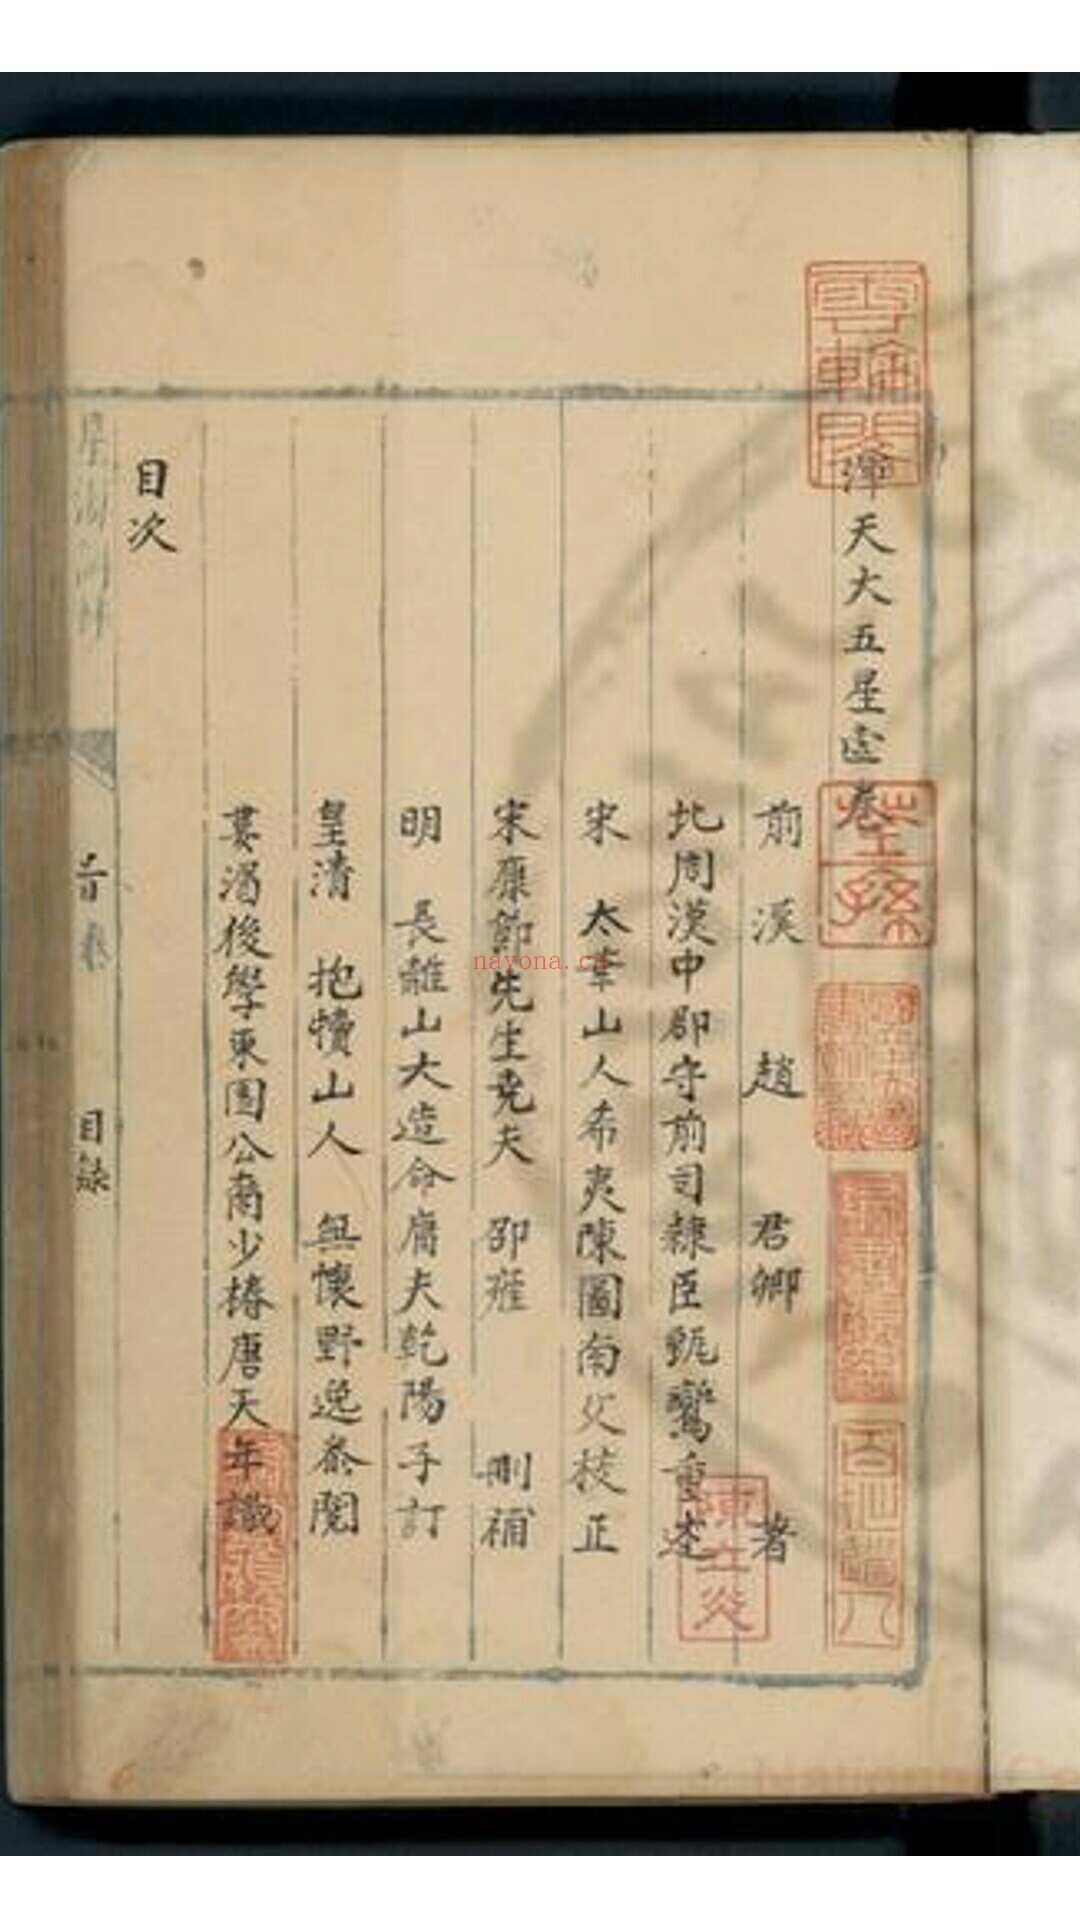 渾天大五星壺卷
前 漢 趙 君卿 著
北周漢中郡守前司隸臣甄鸞重述
宋 太華山人希夷陳圖南父校正
宋康節先生堯夫 邵雍 刪補
明 長離山大造命腐夫乾陽子訂
皇清 抱犢山人 無懷野逸叅閱
婁濁後學東園公裔少椿唐天年識
目次
目錄
雲輪閣
荃孫
nayona.cn